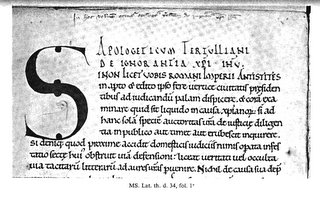 APOLOGETICUM TERTULLIANI
DE IGNORANTIA XPI IHU
SI NON LICET VOBIS ROMANI IMPERII ANTISTITES
in apto & edito ipso fere vertice civitatis presiden
tibus ad iudicandū palam dispicere, & corā exa
minare quid sit liquido in causa xpianoꝝ. si ad
hanc solā speciē auctoritas vr̄a de iusticie diligen
tia in publico aut timet aut erubescit inquirere.
si deniq; quod proxime accidit domesticis iudiciis nimis opata infes
tatio secte huī obstruit viā defensioni: liceat veritati vel occulta
via tacitarū litterarū ad aures vr̄as pvenire. Nichil de causa sua dep
MS. Lat. th. d. 34, fol. 1ʳ